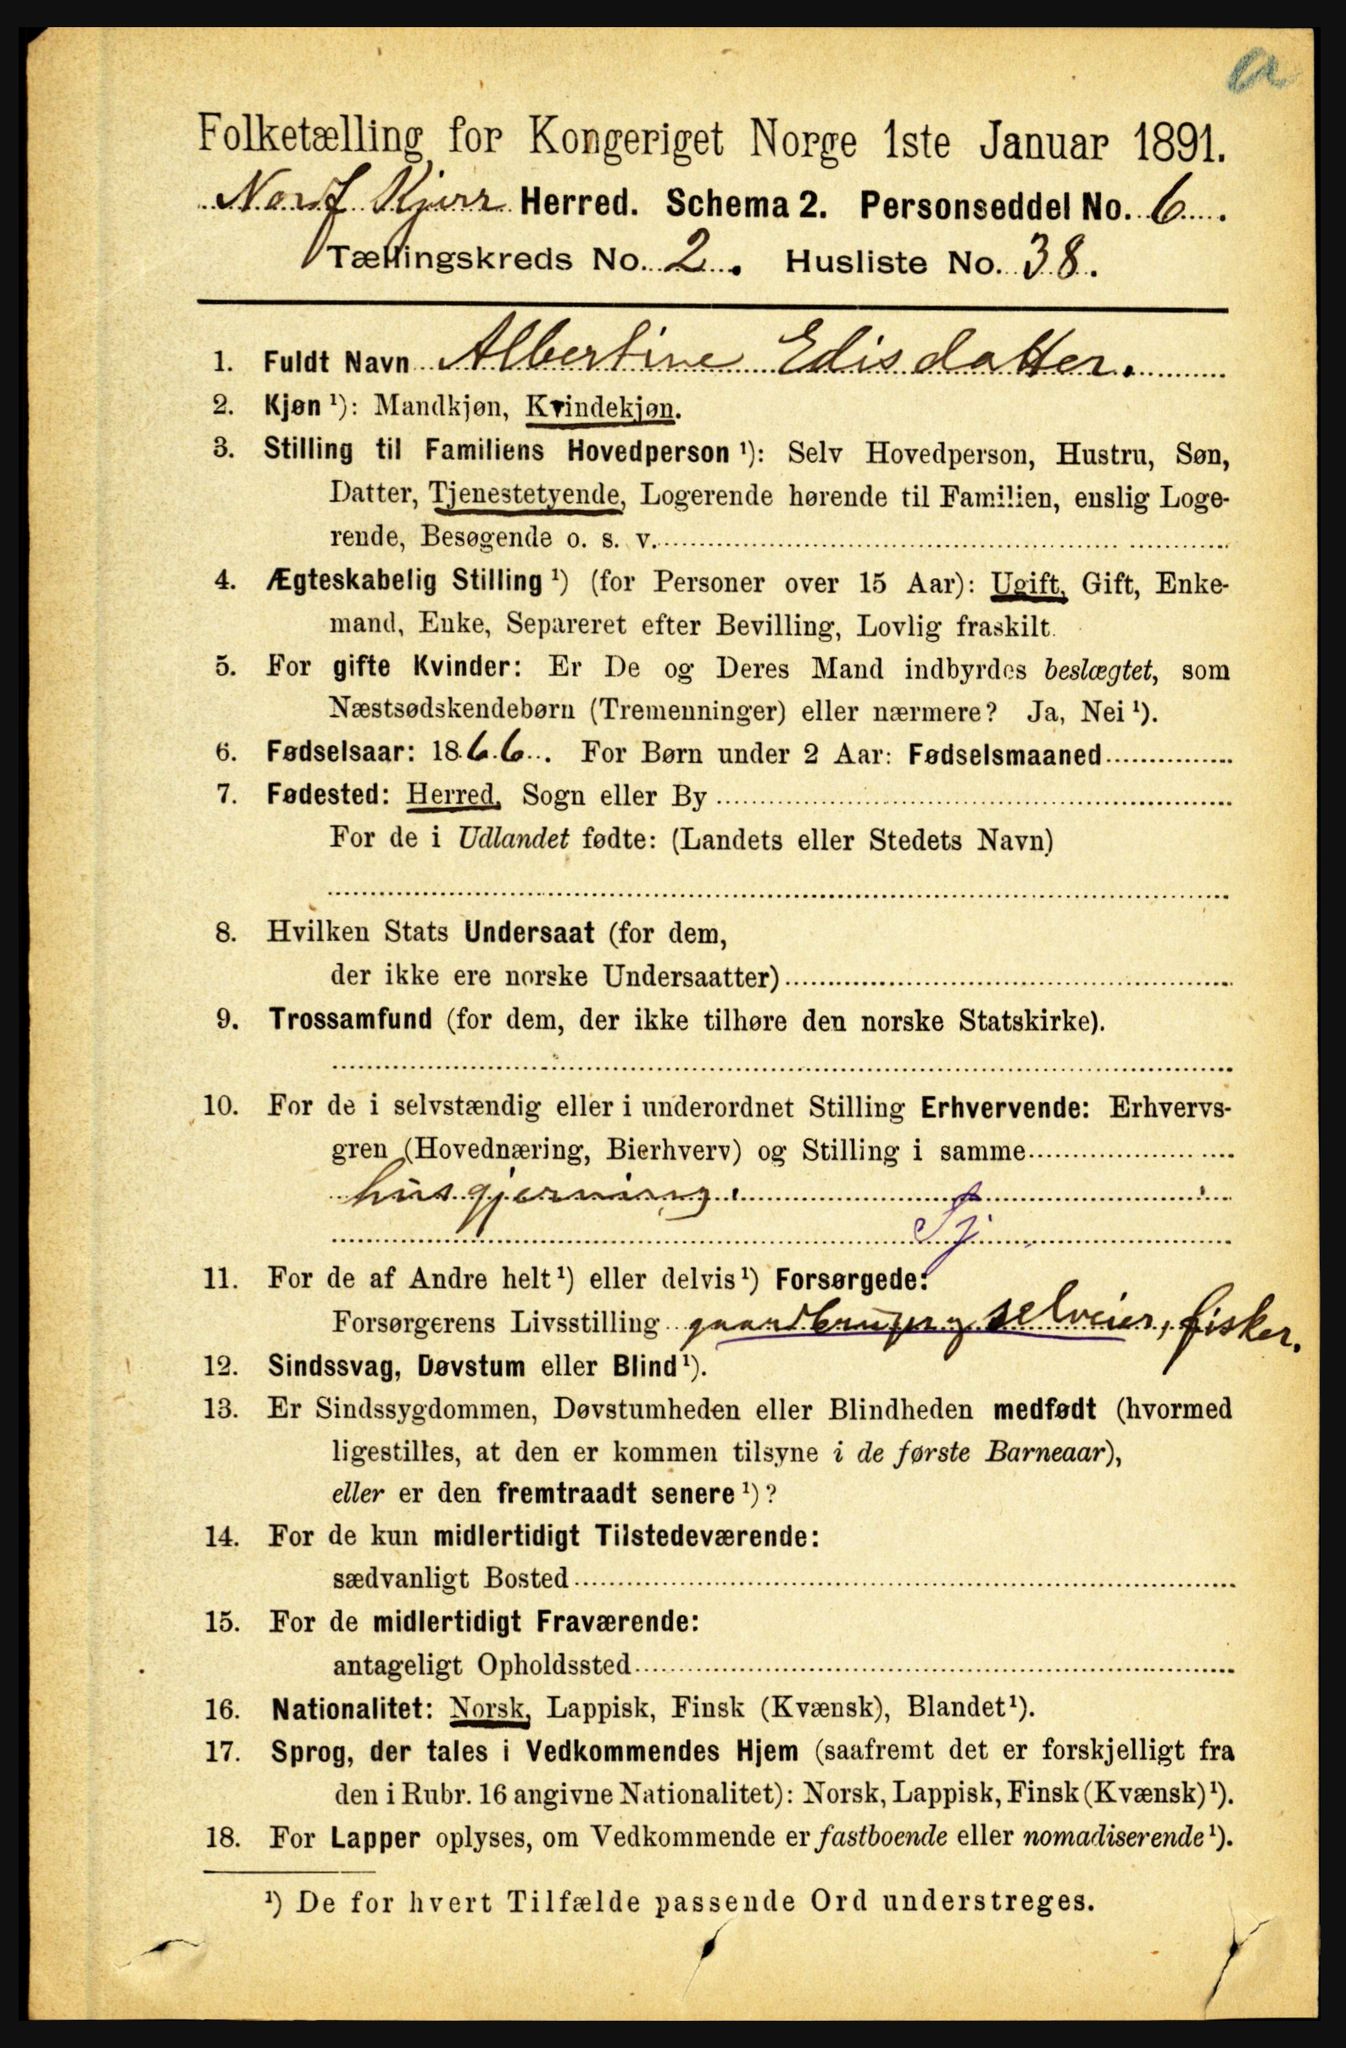 a
Folketælling for Kongeriget Norge 1ste Januar 1891.
Herred. Schema 2. Personseddel No. 6.
Tællingskreds No. 2. Husliste No. 38.
1. Fuldt Navn Albertine Edisdatter.
2. Kjøn ¹): Mandkjøn, Kvindekjøn.
3. Stilling til Familiens Hovedperson ¹): Selv Hovedperson, Hustru, Søn,
Datter, Tjenestetyende, Logerende hørende til Familien, enslig Loge-
rende, Besøgende o. s. v.
4. Ægteskabelig Stilling ¹) (for Personer over 15 Aar): Ugift, Gift, Enke-
mand, Enke, Separeret efter Bevilling, Lovlig fraskilt.
5. For gifte Kvinder: Er De og Deres Mand indbyrdes beslægtet, som
Næstsødskendebørn (Tremenninger) eller nærmere? Ja, Nei ¹).
6. Fødselsaar: 1866. For Børn under 2 Aar: Fødselsmaaned
7. Fødested: Herred, Sogn eller By
For de i Udlandet fødte: (Landets eller Stedets Navn)
8. Hvilken Stats Undersaat (for dem,
der ikke ere norske Undersaatter)
9. Trossamfund (for dem, der ikke tilhøre den norske Statskirke).
10. For de i selvstændig eller i underordnet Stilling Erhvervende: Erhvervs-
gren (Hovednæring, Bierhverv) og Stilling i samme
husgjerning.
Tj
11. For de af Andre helt ¹) eller delvis ¹) Forsørgede:
Forsørgerens Livsstilling gaardbruger og selveier, fisker.
12. Sindssvag, Døvstum eller Blind ¹).
13. Er Sindssygdommen, Døvstumheden eller Blindheden medfødt (hvormed
ligestilles, at den er kommen tilsyne i de første Barneaar),
eller er den fremtraadt senere ¹)?
14. For de kun midlertidigt Tilstedeværende:
sædvanligt Bosted
15. For de midlertidigt Fraværende:
antageligt Opholdssted
16. Nationalitet: Norsk, Lappisk, Finsk (Kvænsk), Blandet ¹).
17. Sprog, der tales i Vedkommendes Hjem (saafremt det er forskjelligt fra
den i Rubr. 16 angivne Nationalitet): Norsk, Lappisk, Finsk (Kvænsk) ¹).
18. For Lapper oplyses, om Vedkommende er fastboende eller nomadiserende ¹).
¹) De for hvert Tilfælde passende Ord understreges.